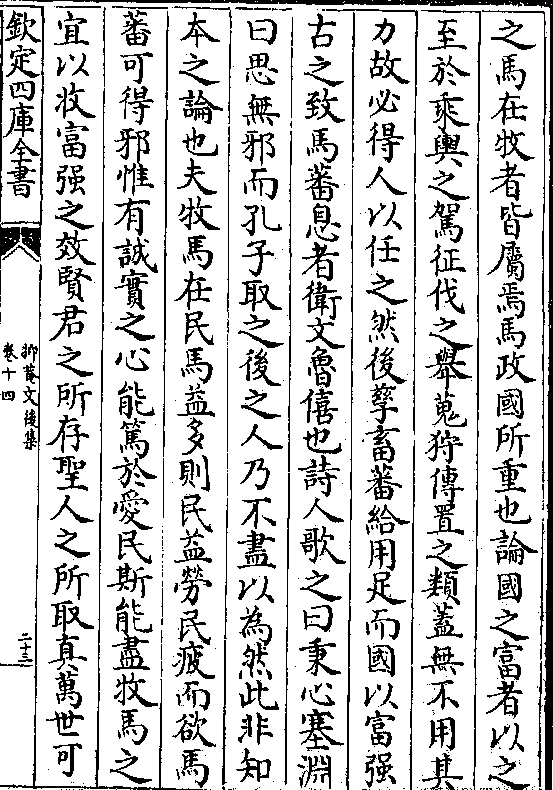 之馬在牧者皆屬焉馬政國所重也論國之富者以之
至於乘輿之駕征伐之舉蒐狩傳置之類蓋無不用其
力故必得人以任之然後孳畜蕃給用足而國以富强
古之致馬蕃息者衛文魯僖也詩人歌之曰秉心塞淵
曰思無邪而孔子取之後之人乃不盡以為然此非知
本之論也夫牧馬在民馬益多則民益勞民疲而欲馬
蕃可得邪惟有誠實之心能篤於愛民斯能盡牧馬之
宜以收富强之效賢君之所存聖人之所取真萬世可
欽定四庫全書
抑菴文後集
卷十四
二十三